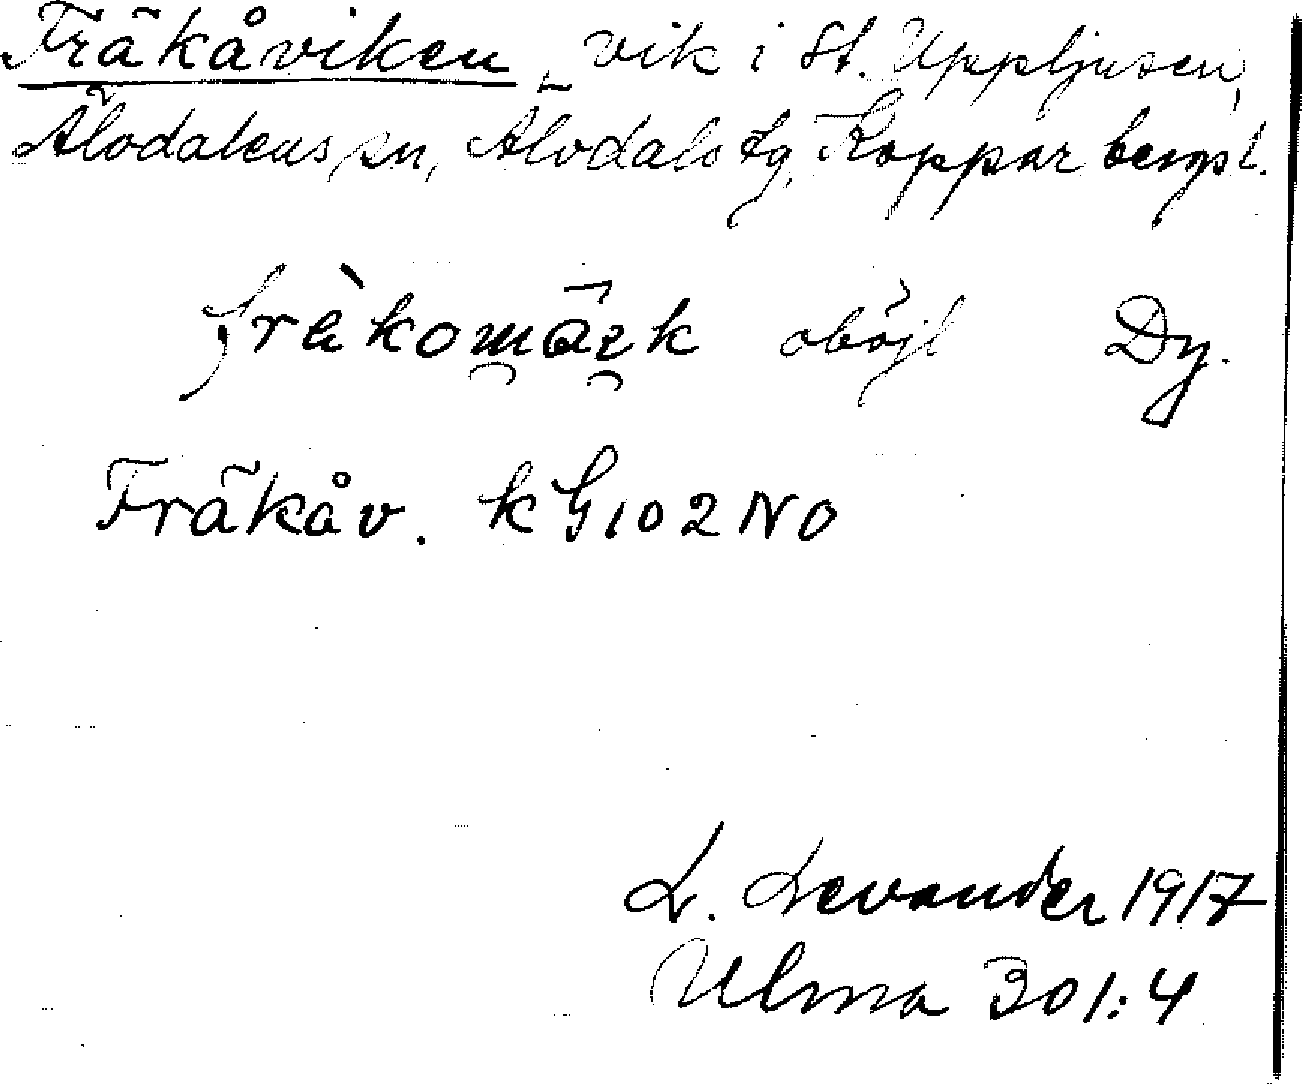 Fräkåviken, vik i St. Uppljusen,
Älvdalens sn, Älvdals tg, Kopparbergs l.
fräkomäk oböjl Dy.
Fräkåv. k G 102 NO
L. Levander 1917
Ulma 301:4